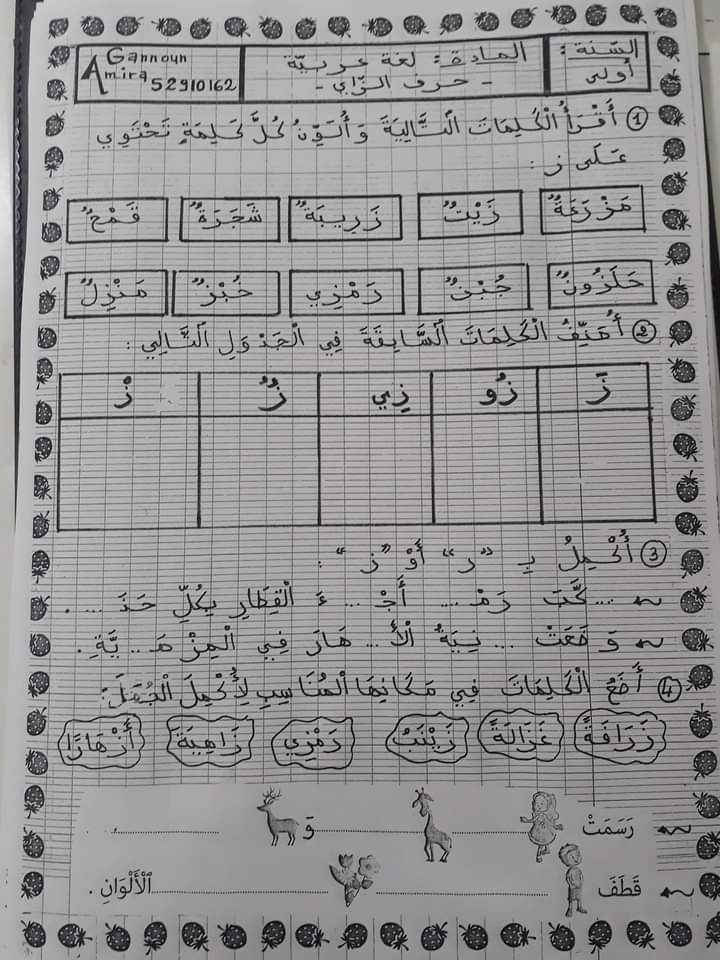 السّنة: أولى
المادة: لغة عربيّة
- حرف الزّاي -
Gannoun
Amira 52910162
① أَقْرَأُ الْكَلِمَاتِ التَّالِيَةَ وَ أُلَوِّنُ كُلَّ كَلِمَةٍ تَحْتَوِي
عَلَى ز :
مَزْرَعَةٌ زَيْتٌ زَرِيبَةٌ شَجَرَةٌ قَمْحٌ
حَلَزُونٌ جُبْنٌ رَمْزِي خُبْزٌ مَنْزِلٌ
② أُصَنِّفُ الْكَلِمَاتِ السَّابِقَةَ فِي الْجَدْوَلِ التَّالِي :
زَ زُو زِي زٌ زْ
③ أُكْمِلُ بِـ "ر" أَوْ "ز" :
... كَّبَ رَمْ .... أَجْـ ... ءَ الْقِطَارِ بِكُلِّ حَذَ .... .
وَضَعَتْ ... نِيَةُ الْأَ... هَارَ فِي الْمِزْهَـ... يَّةِ.
④ أَضَعُ الْكَلِمَاتِ فِي مَكَانِهَا الْمُنَاسِبِ لِأُكْمِلَ الْجُمَلَ:
زَرَافَةً غَزَالَةً زَيْنَبُ رَمْزِي زَاهِيَةَ أَزْهَارًا
رَسَمَتْ ........ وَ ........ .
قَطَفَ ........ اَلْأَلْوَانِ .